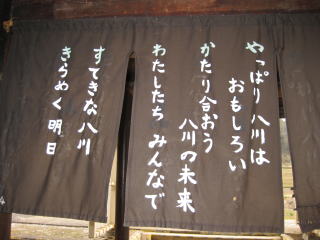 やっぱり八川は
おもしろい
かたり合おう
八川の未来
わたしたち みんなで
すてきな八川
きらめく明日